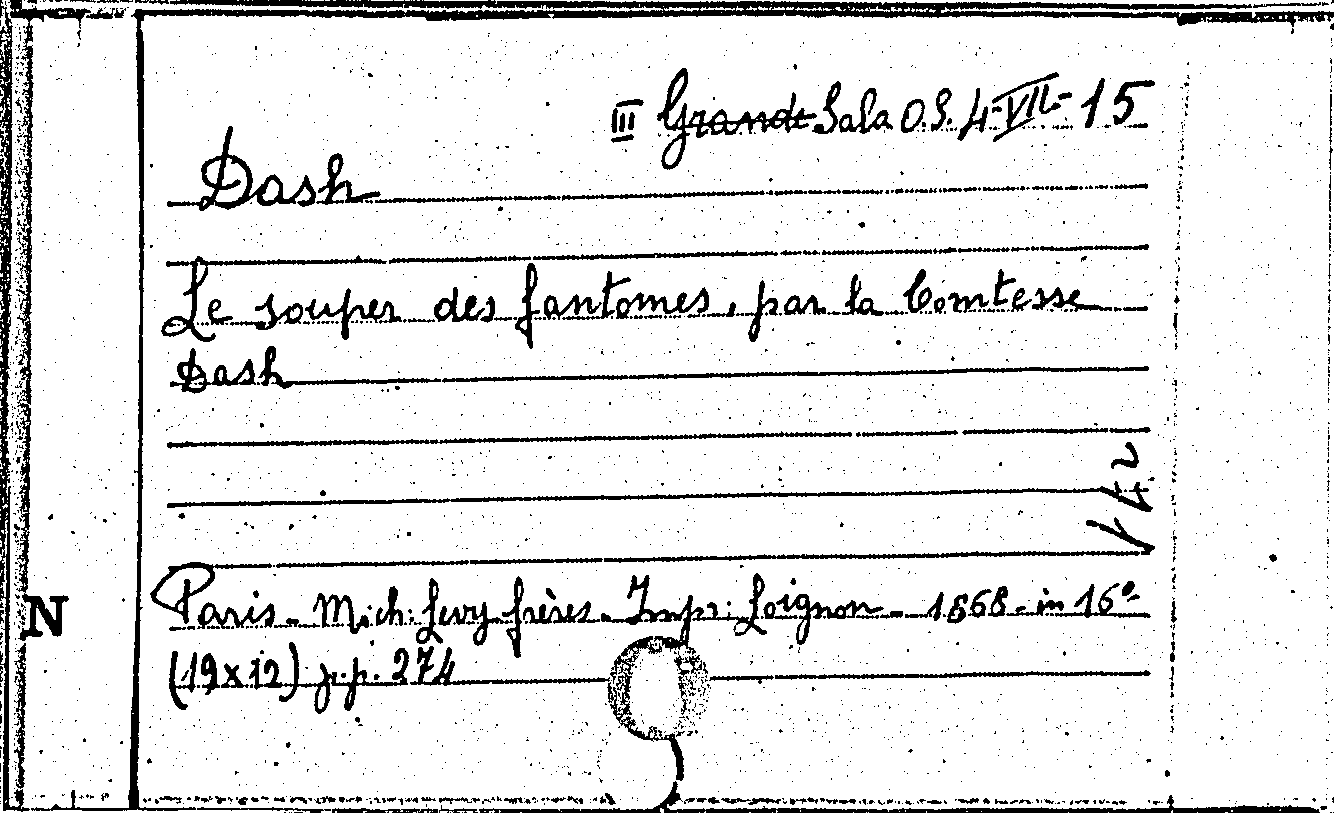 III Grande Sala O.S. 4-VII-15
Dash
Le souper des fantomes, par la Comtesse
Dash
Paris - Mich: Levy frères. Impr: Loignon - 1868 - in 16º-
(19x12) p.p. 274
N